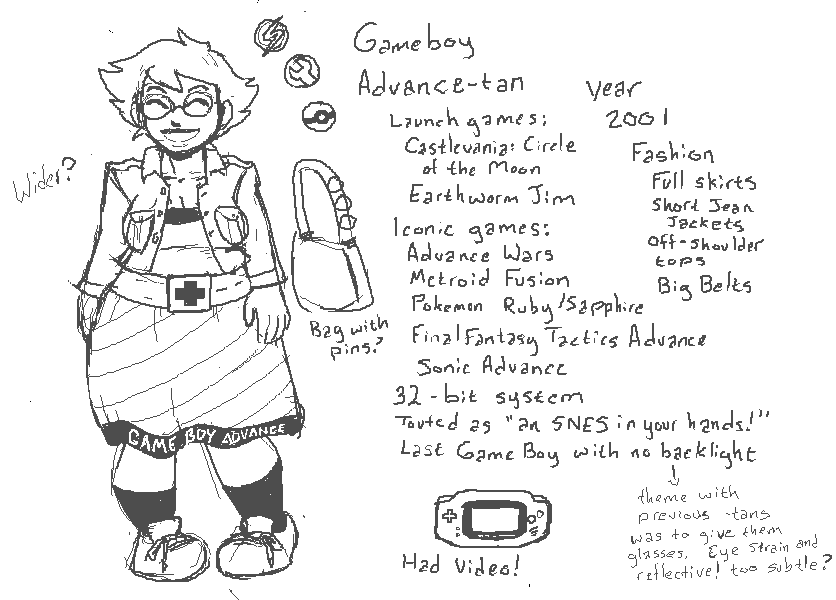 Gameboy
Advance-tan
Launch games:
Castlevania: Circle
of the Moon
Earthworm Jim
Iconic games:
Advance Wars
Metroid Fusion
Pokemon Ruby/Sapphire
Final Fantasy Tactics Advance
Sonic Advance
32-bit system
Touted as "an SNES in your hands!"
Last Game Boy with no backlight
year
2001
Fashion
Full skirts
Short Jean
Jackets
Off-shoulder
tops
Big Belts
Wider?
Bag with
pins?
GAME BOY ADVANCE
Had Video!
theme with
previous -tans
was to give them
glasses. Eye strain and
reflective! too subtle?